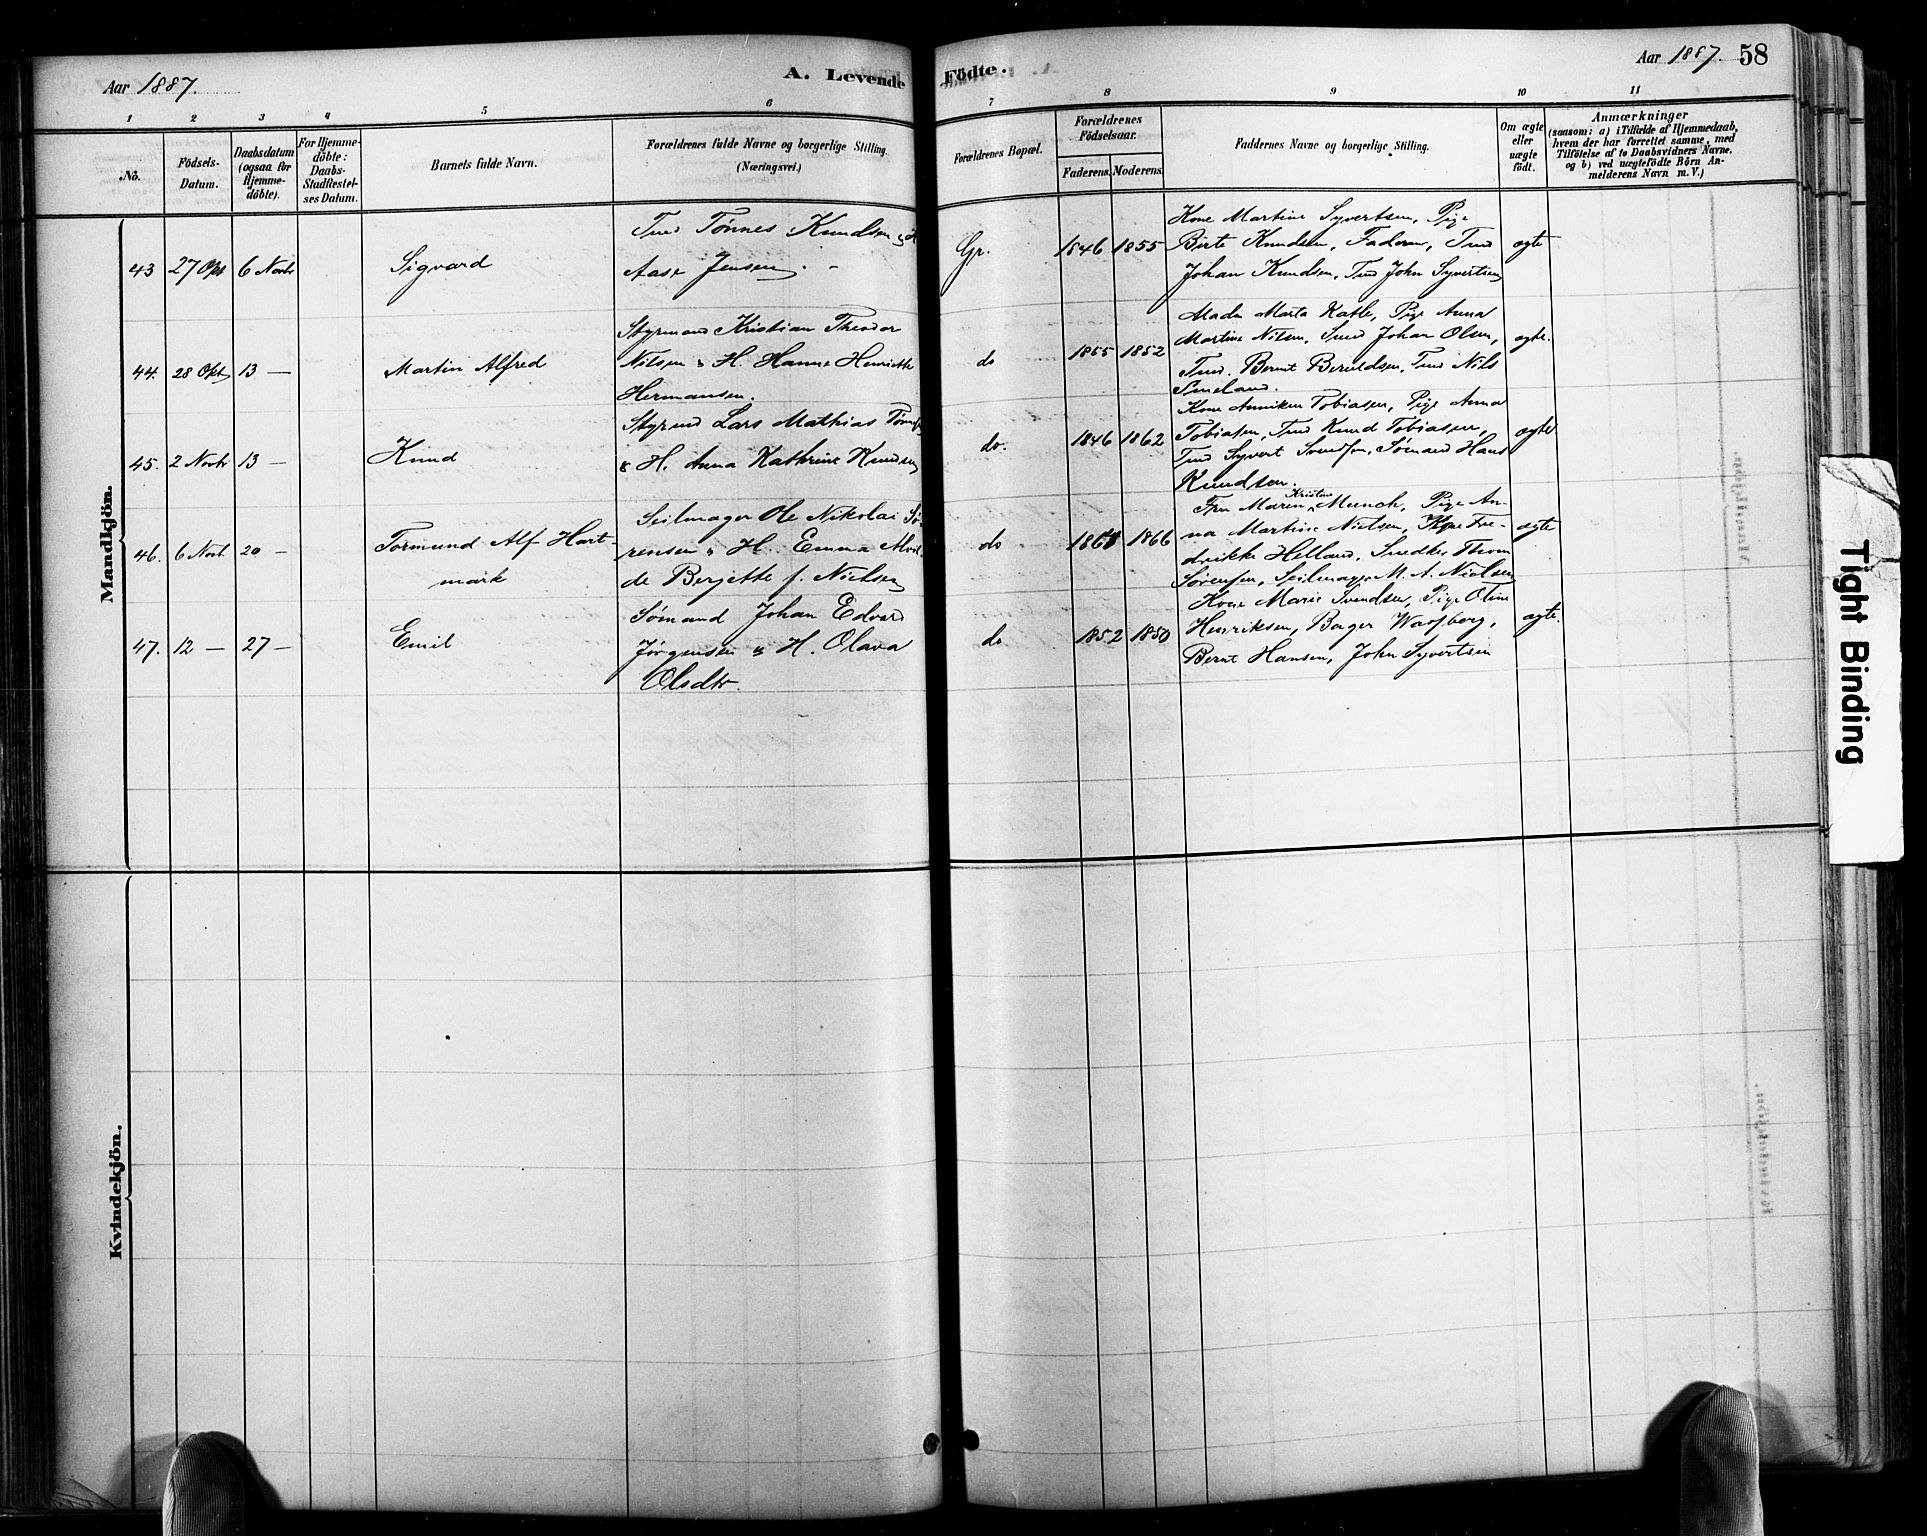 Aar 1887.
A. Levende Födte.
Aar 1887. 58
1 2 3 4 5 6 7 8 9 10 11
No.
Födsels-Datum.
Daabsdatum (ogsaa for Hjemme-döbte).
For Hjemme-döbte: Daabs-Stadfæstel-ses Datum.
Barnets fulde Navn.
Forældrenes fulde Navne og borgerlige Stilling. (Næringsvei.)
Forældrenes Bopæl.
Forældrenes Födselsaar.
Faderens. Moderens.
Faddernes Navne og borgerlige Stilling.
Om ægte eller uægte födt.
Anmærkninger
(saasom: a) i Tilfælde af Hjemmedaab, hvem der har forrettet samme, med Tilföielse af to Daabsvidners Navne, og b) ved uægtefödte Börn An-melderens Navn m. V.)
Mandkjön.
43 27 Okt 6 Novbr
Sigvard
Tmd Tønnes Knudsen & H
Aase Jensen.
Gr.
1846 1855
Kone Martine Syvertsen, Pige
Birte Knudsen, Faderen, Tmd
Johan Knudsen, Tmd John Syvertsen
ægte
44. 28 Okt 13 —
Martin Alfred
Styrmand Kristian Theodor
Nilsen & H. Hanne Henriette
Hermansen.
do
1855 1852
Madm Marta Kalle, Pige Anna
Martine Nilsen, Smd Johan Olsen,
Tmd. Bernt Beruldsen, Tmd Nils
Smeland.
ægte.
45. 2 Novbr 13 —
Knud
Styrmd Lars Mathias
& H. Anna Kathrine Knudsen
do.
1846 1862
Kone Anniken Tobiasen, Pige Anna
Tobiasen, Tmd Knud Tobiasen,
Tmd Syvert Svendsen, Sømand Hans
Knudsen.
ægte
46. 6 Novb 20 —
Tormund Alf Hart-
mark
Seilmager Ole Nikolai Sø-
rensen & H. Emma Alvil-
de Berjette f. Nielsen
do
1866
Fru Maren Kristine Munch, Pige An-
na Martine Nielsen, Kone Fre-
drikke Helland, Snedker Thom
Sørensen, Seilmager M. A. Nielsen
ægte
47. 12 — 27 —
Emil
Sømand Johan Edvard
Jørgensen & H. Olava
Olsdtr.
do
1852 1850
Kone Marie Svendsen, Pige Oline
Henriksen, Bager Warsberg,
Bernt Hansen, John Syvertsen
ægte.
Kvindekjön.
Tight Binding